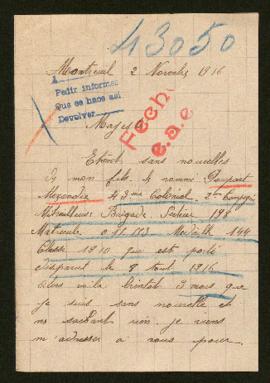 43050
Montreuil 2 Novembre 1916
Pedir informes
Que se hace asi
Devolver
Fecho
e.a.e
Majesté
Etant sans nouvelles
de mon fils le nommé Poupart
Alexandre 43me Colonial 2me Compagnie
Mitrailleuse Brigade Secteur
Matricule Médaille 144
Classe 1910 qui est porté
disparut le 8 aout 1916
Alors voila bientot 3 mois que
je suis sans nouvelle et
ne sachant rien je viens
m'adresser à vous pour